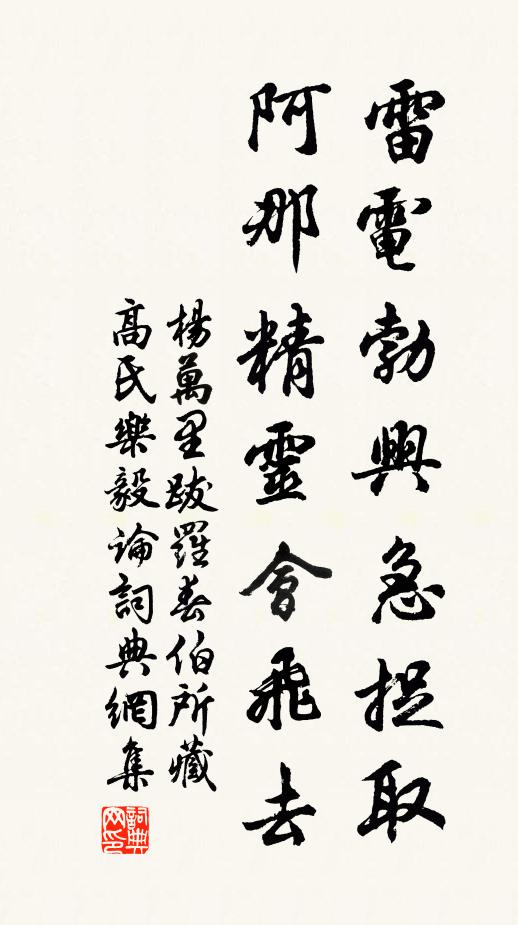 雷電勃興急捉取
阿那精靈會飛去
楊萬里跋羅春伯所藏
高氏樂毅論詞典網集
詞典网印